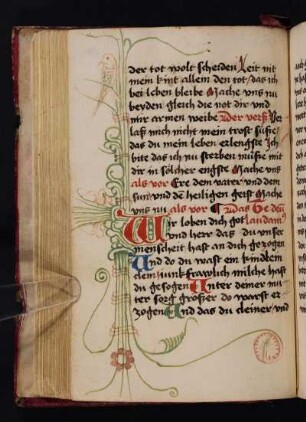 der tot wolt scheiden Leit nit
mein kint allein den tot / das ich
bei leben bleibe Mache uns nu
beyden gleich die not dir und
mir armen weibe Der vers Ver
laß mich nicht mein trost susse /
das du mein leben erlengst Ich
bite das ich nu sterben musse mit
dir in sölcher engste Mache uns
als vor Ere dem vater und dem
sun und de heiligen geist Mache
uns nu als vor ¶ Das Te deu
Wir loben dich got laudam9
und herr das du unser
menscheit hast an dich gezogen
Und do du wast ein kindlein
dein junkfrawlich milche hast
du gesogen Unter deiner mu
ter sorg grosser do warst er
zogen Und das du deiner und